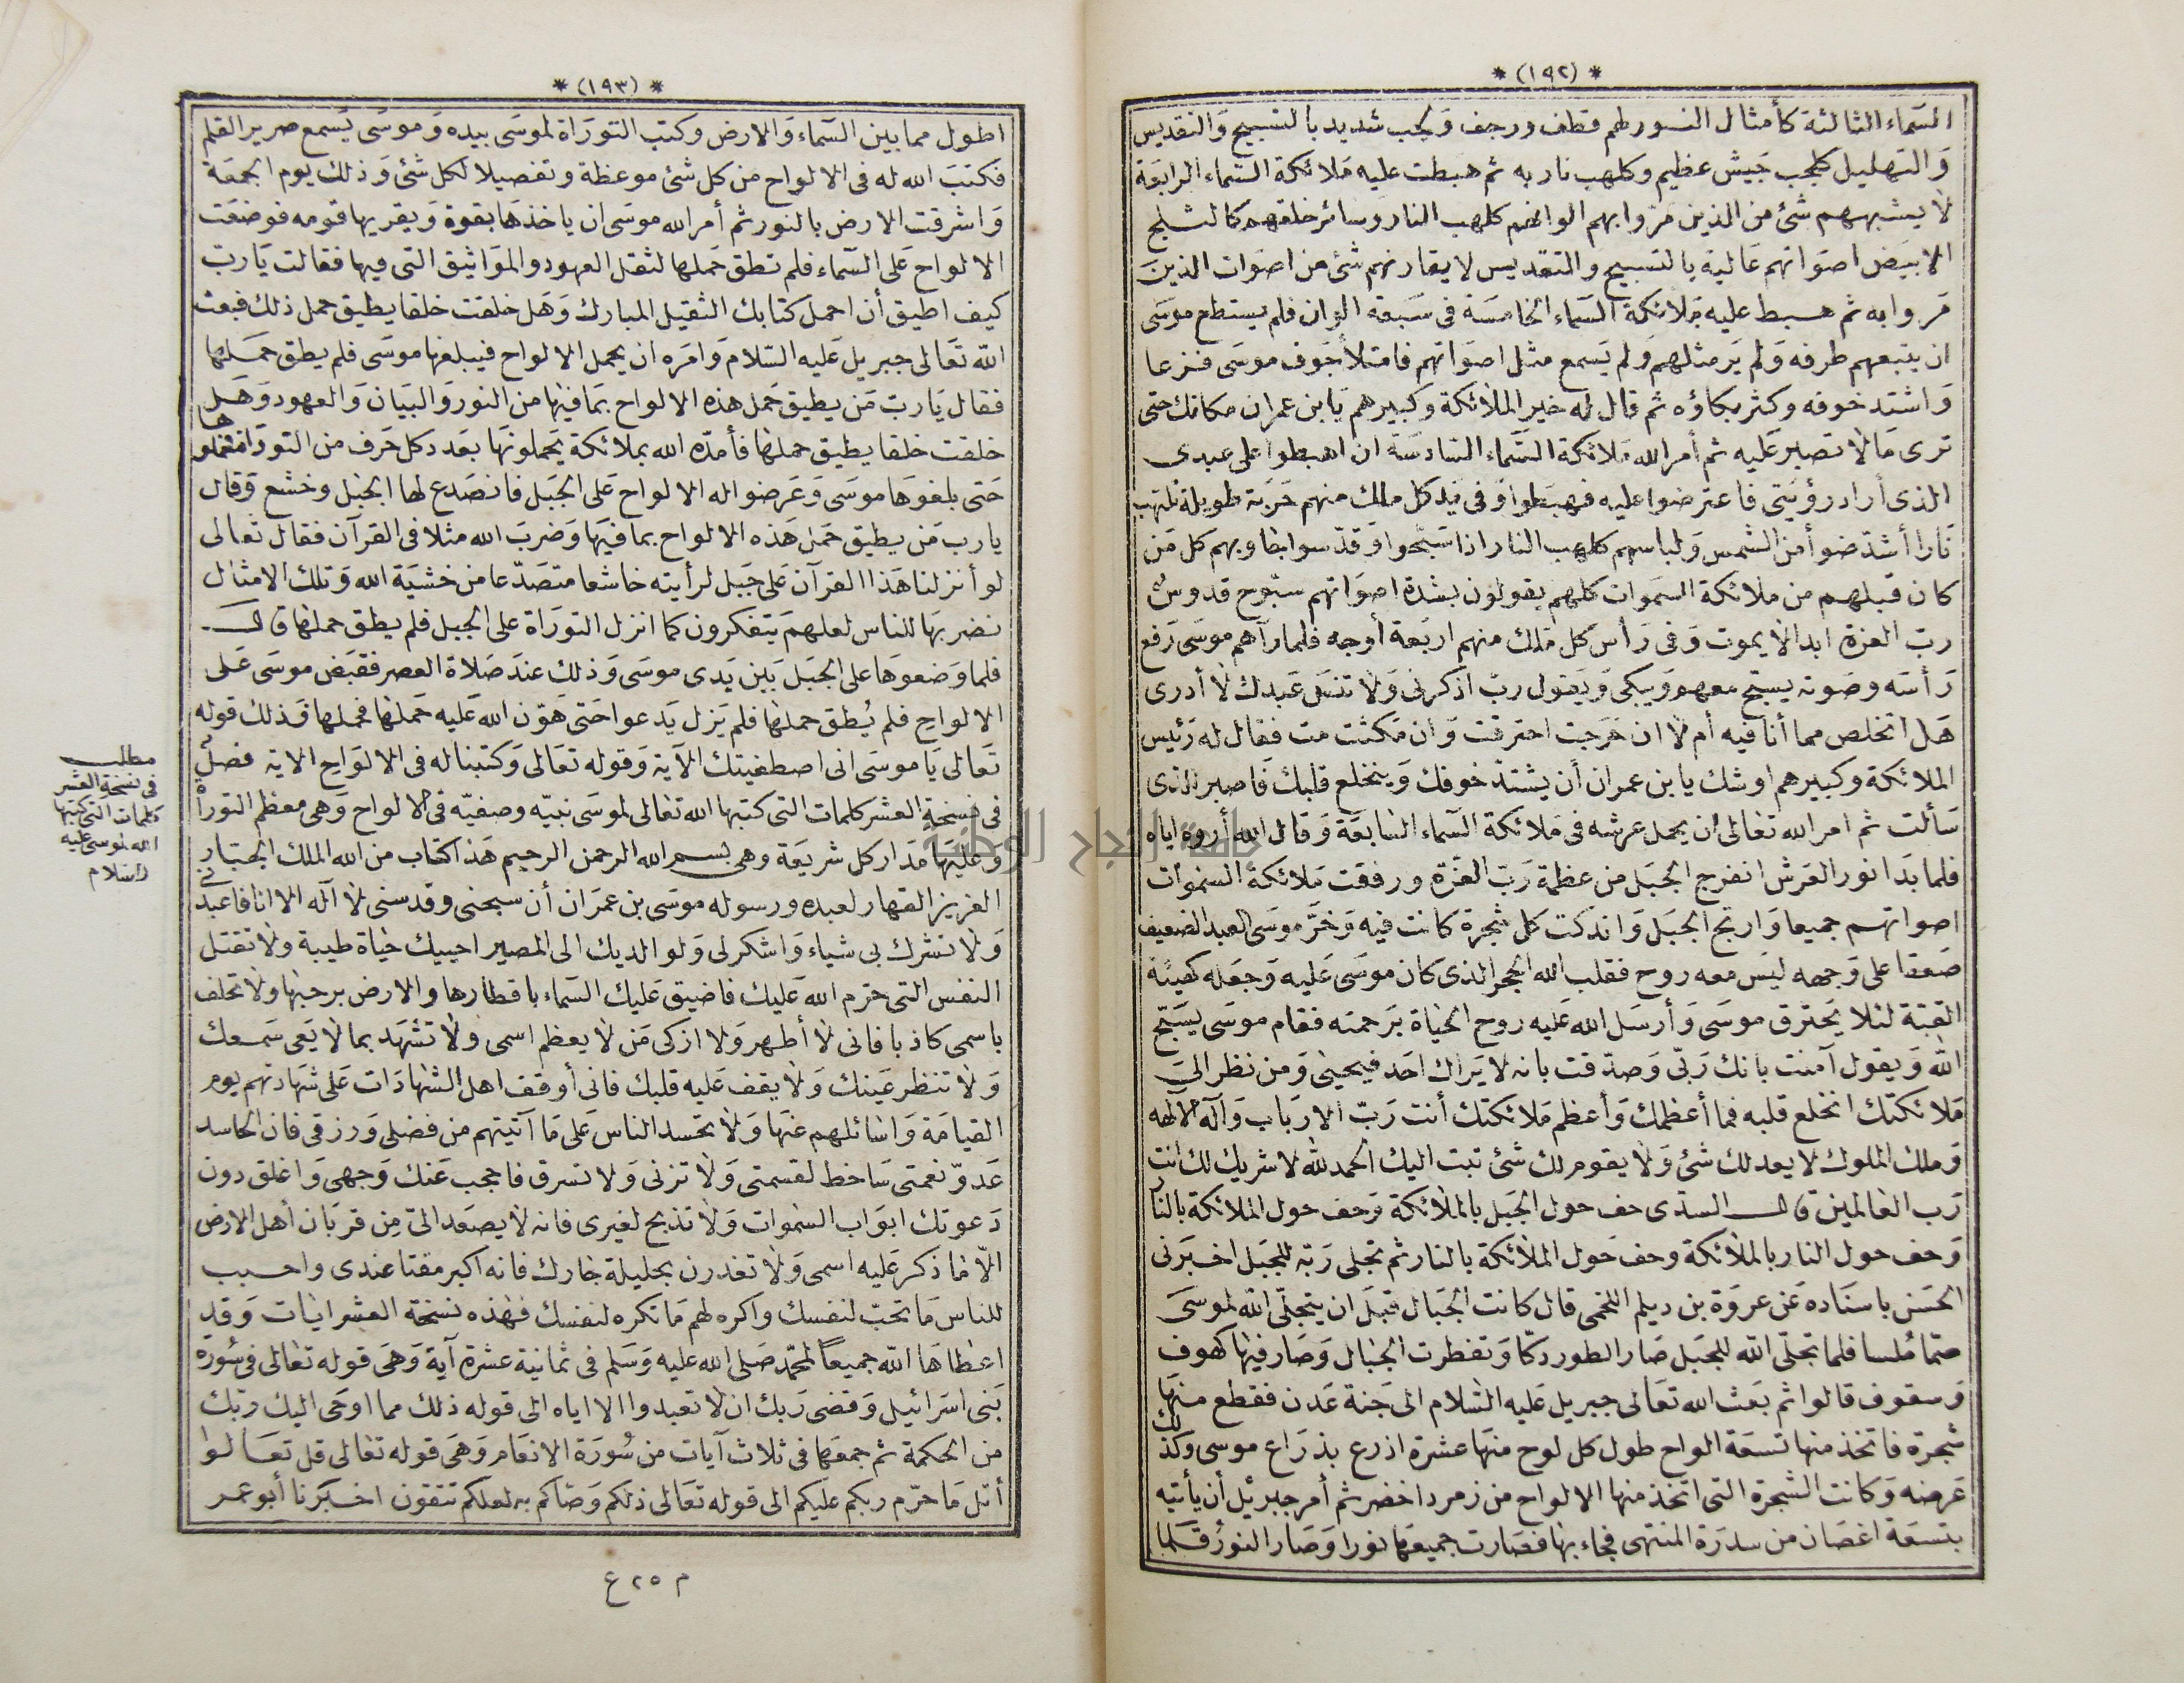 * (١٩٢) *
السماء الثالثة كأمثال النسور لهم قطف ورجف ولجب شديد بالتسبيح والتقديس
والتهليل كلجب جيش عظيم وكلهب نار به ثم هبطت عليه ملائكة السماء الرابعة
لا يشبههم شئ من الذين مروا بهم الوانهم كلهب النار وسائر خلقهم كالثلج
الابيض اصواتهم عالية بالتسبيح والتقديس لا يقاربهم شئ من اصوات الذين
مروا به ثم هبط عليه ملائكة السماء الخامسة في سبعة الوان فلم يستطع موسى
ان يتبعهم طرفه ولم ير مثلهم ولم يسمع مثل اصواتهم فامتلأ جوف موسى فزعا
واشتد خوفه وكثر بكاؤه ثم قال له خير الملائكة وكبيرهم يا بن عمران مكانك حتى
ترى مالا تصبر عليه ثم أمر الله ملائكة السماء السادسة ان اهبطوا على عبدى
الذى أراد رؤيتى فاعترضوا عليه فهبطوا وفى يد كل ملك منهم حربة طويلة تلتهب
نارا أشد ضوأ من الشمس ولباسهم كلهب النار اذا سبحوا وقدسوا جاوبهم كل من
كان قبلهم من ملائكة السموات كلهم يقولون بشدة اصواتهم سبوح قدوس
رب العزة ابدا لا يموت وفى رأس كل ملك منهم اربعة أوجه فلما رآهم موسى رفع
رأسه وصوته يسبح معهم ويبكى ويقول رب اذكرنى ولا تنس عبدك لا أدرى
هل اتخلص مما أنا فيه أم لا ان خرجت احترقت وان مكثت مت فقال له رئيس
الملائكة وكبيرهم اوشك يا بن عمران أن يشتد خوفك وينخلع قلبك فاصبر للذى
سألت ثم امر الله تعالى ان يحمل عرشه فى ملائكة السماء السابعة وقال الله أروه اياه
فلما بدا نور العرش انفرج الجبل من عظمة رب العزة ورفعت ملائكة السموات
اصواتهم جميعا وارتج الجبل واندكت كل شجرة كانت فيه وخر موسى العبد الضعيف
صعقا على وجهه ليس معه روح فقلب الله الحجر الذى كان موسى عليه وجعله كهيئة
القبة لئلا يحترق موسى وأرسل الله عليه روح الحياة برحمته فقام موسى يسبح
الله ويقول آمنت بانك ربى وصدقت بانه لا يراك احد فيحيى ومن نظر الى
ملائكتك انخلع قلبه فما أعظمك وأعظم ملائكتك أنت رب الارباب وآله الآلهه
وملك الملوك لا يعدلك شئ ولا يقوم لك شئ تبت اليك الحمد لله لا شريك لك انت
رب العالمين قال السدى حف حول الجبل بالملائكة وحف حول الملائكة بالنار
وحف حول النار بالملائكة وحف حول الملائكة بالنار ثم تجلى ربه للجبل اخبرنى
الحسن باسناده عن عروة بن ديلم اللخمى قال كانت الجبال قبل ان يتجلى الله لموسى
صما ملسا فلما تجلى الله للجبل صار الطور دكا وتفطرت الجبال وصار فيها كهوف
وسقوف قالوا ثم بعث الله تعالى جبريل عليه السلام الى جنة عدن فقطع منها
شجرة فاتخذ منها تسعة الواح طول كل لوح منها عشرة اذرع بذراع موسى وكذلك
عرضه وكانت الشجرة التى اتخذ منها الالواح من زمرد اخضر ثم أمر جبريل أن يأتيه
بتسعة اغصان من سدرة المنتهى فجاء بها فصارت جميعها نورا وصار النور قلما
* (١٩٣) *
اطول مما بين السماء والارض وكتب التوراة لموسى بيده وموسى يسمع صرير القلم
فكتب الله له فى الالواح من كل شئ موعظة وتفصيلا لكل شئ وذلك يوم الجمعة
واشرقت الارض بالنور ثم أمر الله موسى ان ياخذها بقوة ويقر بها قومه فوضعت
الالواح على السماء فلم تطق حملها لثقل العهود والمواثيق التى فيها فقالت يا رب
كيف اطيق أن احمل كتابك الثقيل المبارك وهل خلقت خلقا يطيق حمل ذلك فبعث
الله تعالى جبريل عليه السلام وامره ان يحمل الالواح فيبلغها موسى فلم يطق حملها
فقال يا رب من يطيق حمل هذه الالواح بما فيها من النور والبيان والعهود وهل
خلقت خلقا يطيق حملها فأمده الله بملائكة يحملونها بعدد كل حرف من التوراة فحملوها
حتى بلغوها موسى وعرضوا له الالواح على الجبل فانصدع لها الجبل وخشع وقال
يارب من يطيق حمل هذه الالواح بما فيها وضرب الله مثلا فى القرآن فقال تعالى
لو أنزلنا هذا القرآن على جبل لرأيته خاشعا متصدعا من خشية الله وتلك الامثال
نضربها للناس لعلهم يتفكرون كما انزل التوراة على الجبل فلم يطق حملها قال
فلما وضعوها على الجبل بين يدى موسى وذلك عند صلاة العصر فقبض موسى على
الالواح فلم يطق حملها فلم يزل يدعوا حتى هون الله عليه حملها فحملها فذلك قوله
تعالى يا موسى انى اصطفيتك الآية وقوله تعالى وكتبنا له فى الالواح الاية فصل
فى نسخة العشر كلمات التى كتبها الله تعالى لموسى نبيه وصفيه فى الالواح وهى معظم التوراة
وعليها مدار كل شريعة وهى بسم الله الرحمن الرحيم هذا كتاب من الله الملك الجبار
العزيز القهار لعبده ورسوله موسى بن عمران أن سبحنى وقدسنى لا آله الا انا فاعبدنى
ولا تشرك بى شياء واشكرلى ولوالديك الى المصير احييك حياة طيبة ولا تقتل
النفس التى حرم الله عليك فاضيق عليك السماء باقطارها والارض برحبها ولا تحلف
باسمى كاذبا فانى لا أطهر ولا ازكى من لا يعظم اسمى ولا تشهد بما لا يعى سمعك
ولا تنظر عينك ولا يقف عليه قلبك فانى أوقف اهل الشهادات على شهادتهم يوم
القيامة واسائلهم عنها ولا تحسد الناس على ما آتيتهم من فضلى ورزقى فان الحاسد
عدو نعمتى ساخط لقسمتى ولا تزنى ولا تسرق فاحجب عنك وجهى واغلق دون
دعوتك ابواب السموات ولا تذبح لغيرى فانه لا يصعد الى من قربان أهل الارض
الا ما ذكر عليه اسمى ولا تغدرن بحليلة جارك فانه اكبر مقتا عندى واحبب
للناس ما تحب لنفسك واكره لهم ما تكره لنفسك فهذه نسخة العشر ايات وقد
اعطاها الله جميعاً لمحمد صلى الله عليه وسلم فى ثمانية عشرة آية وهى قوله تعالى فى سورة
بنى اسرائيل وقضى ربك ان لا تعبدوا الا اياه الى قوله ذلك مما اوحى اليك ربك
من الحكمة ثم جمعها فى ثلاث آيات من سورة الانعام وهى قوله تعالى قل تعالوا
أتل ما حرم ربكم عليكم الى قوله تعالى ذلكم وصاكم به لعلكم تتقون اخبرنا أبو عمر
مطلب
فى نسخة العشر
كلمات التى كتبها
الله لموسى عليه
السلام
م ٢٥ ع
جامعة النجاح الوطنية